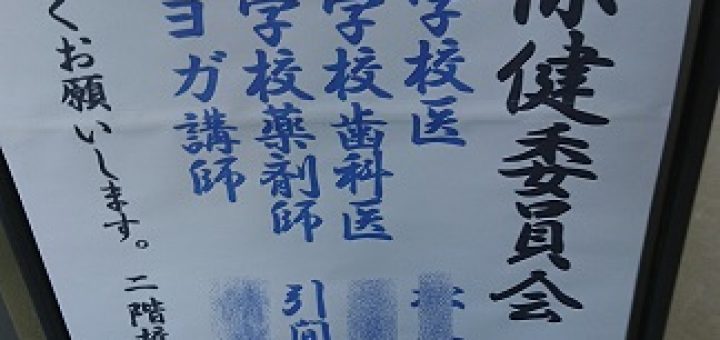 健委員会
学校医
学校歯科医
学校薬剤師 引間
ヨガ講師
くお願いします。二階